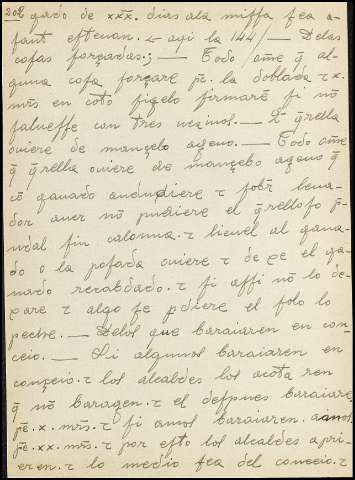 202 gado de xxx. dias ala missa sea a-
saut esteuan. aqi la 144/— Delas
cosas forçadas.;— Todo ome q̄ al-
guna cosa forçare pē. la doblada τ x.
mr̄s en coto sigelo firmaré si nō
saluesse con tres uezinos.— q̄rella
ouiere de mançebo ageno.— Todo ome
q̄ q̄rella ouiere de mançebo ageno q̄
cō ganado andudiere τ sobr̄ leua-
dor auer nō pudiere el q̄relloso
sin calonna. τ lieuel al gana-
do o la posada ouiere τ de xe el ga-
nado recabdado. τ si assi nō lo de-
xare τ algo se pdiere el solo lo
peche.— Delos que baraiaren en con-
ceio.— Si algunos baraiaren en
conçeio. τ los alcaldes los acota ren
q̄ nō baragen. τ el despues baraiare
pē. x. mr̄s. τ si amos baraiaren. amos
pē. xx. mr̄s. τ por esto los alcaldes apri-
eren. τ lo medio sea del conceio. τ